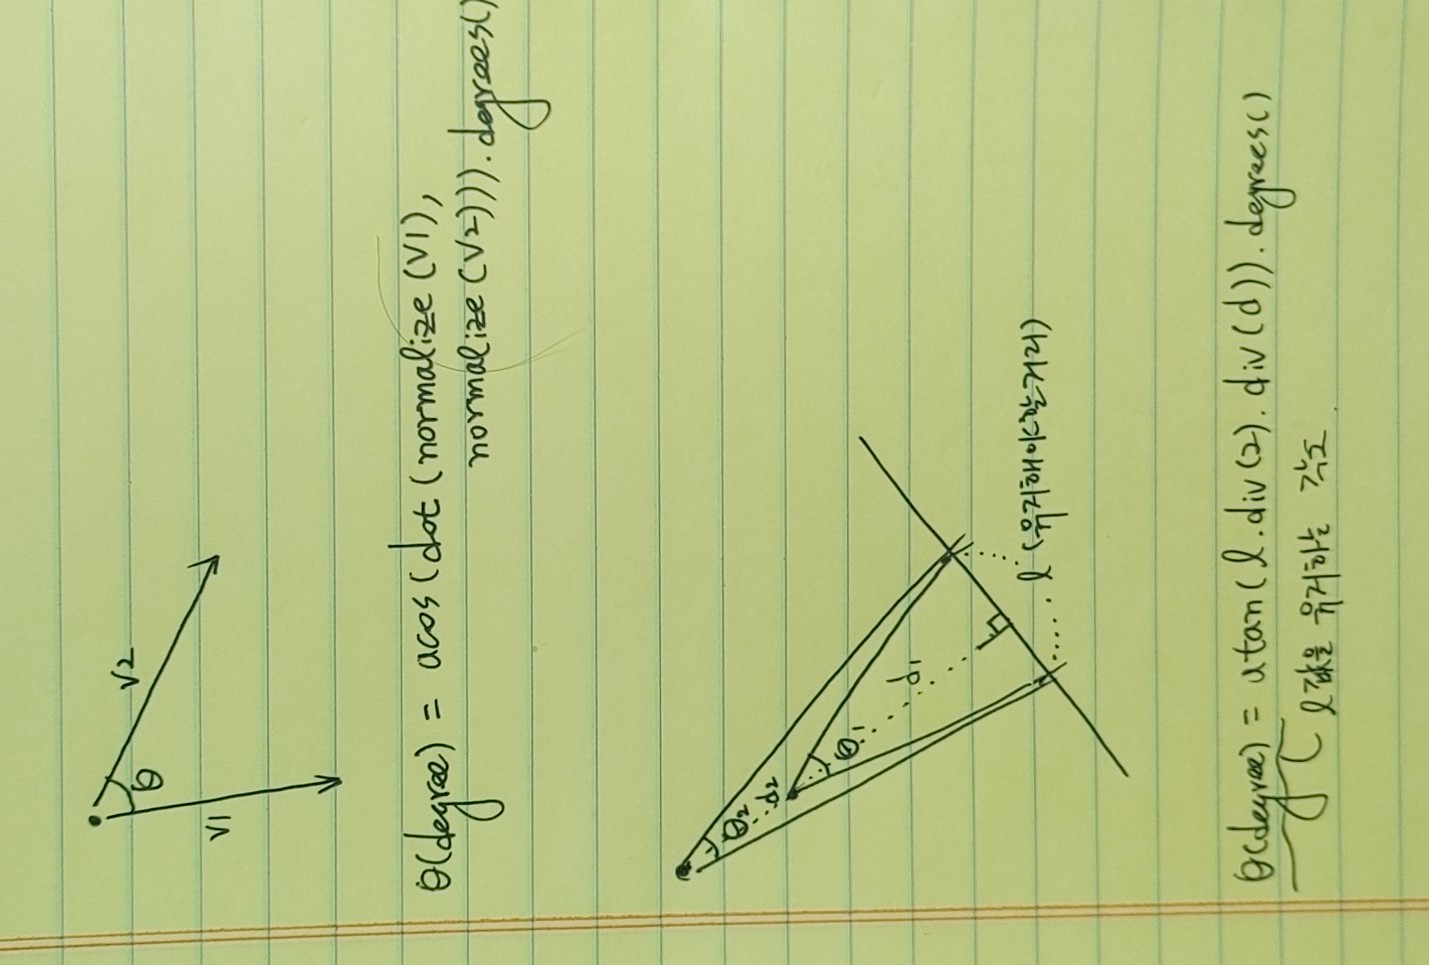 V2
θ
V1
θ(degree) = acos(dot(normalize(V1),
normalize(V2))).degrees()
θ2
d2
θ1
d1
l(유지해야할거리)
θ(degree) = atan(l.div(2).div(d)).degrees()
l값을 유지하는 각도